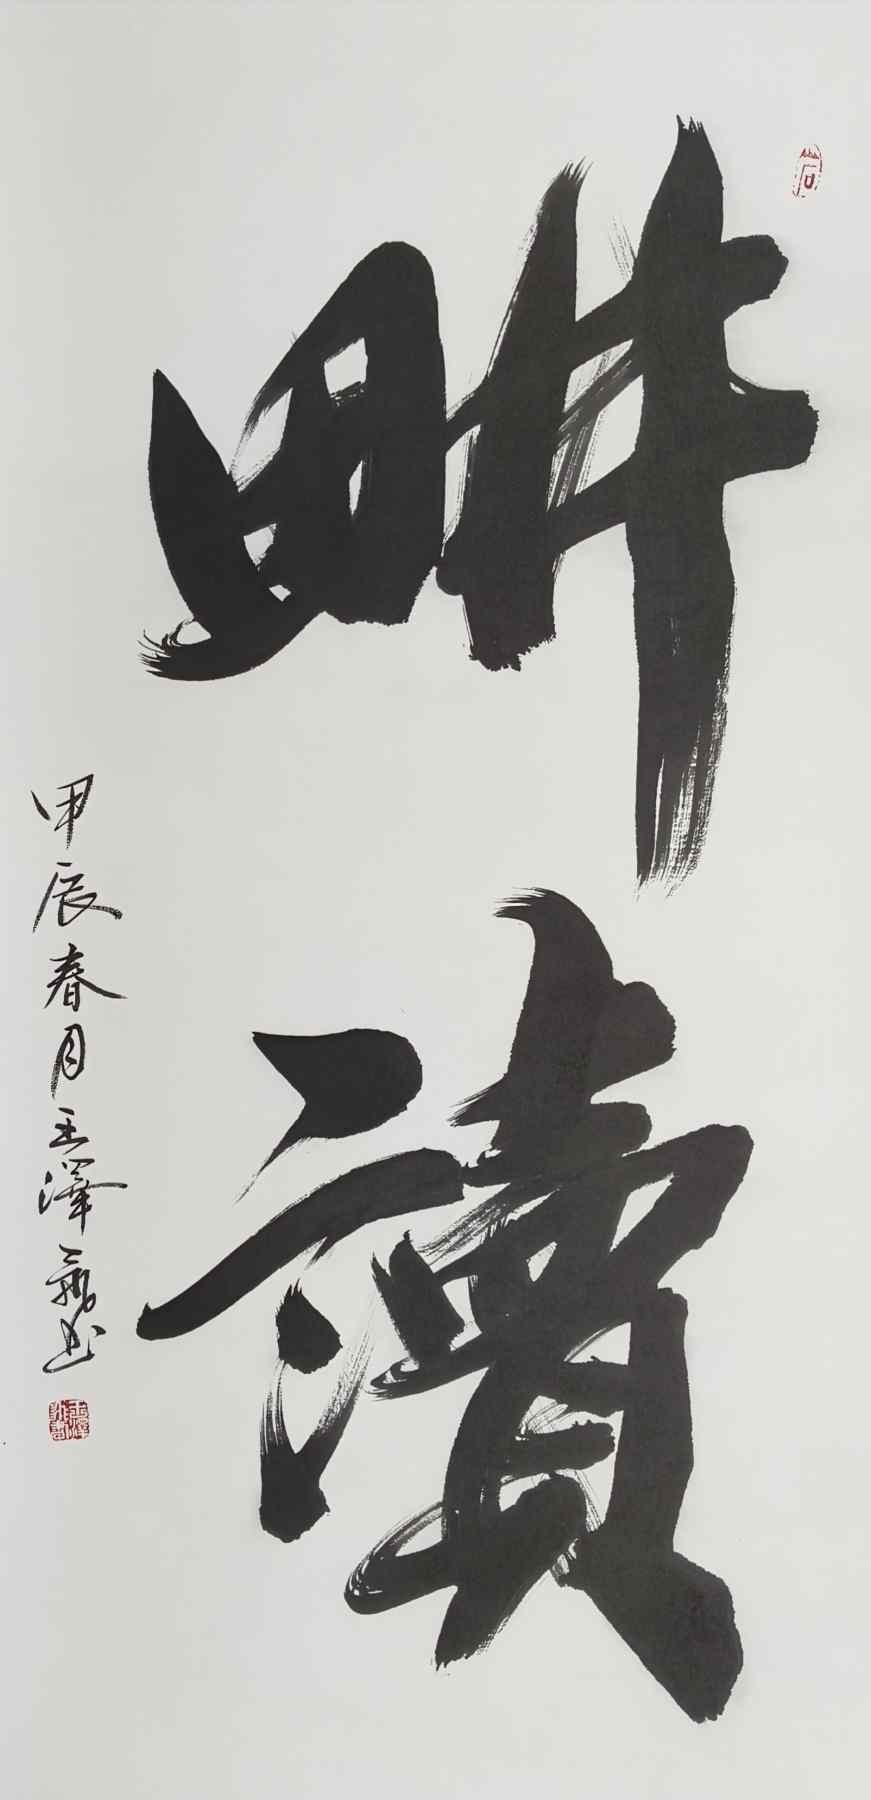 畊讀
甲辰春月王澤